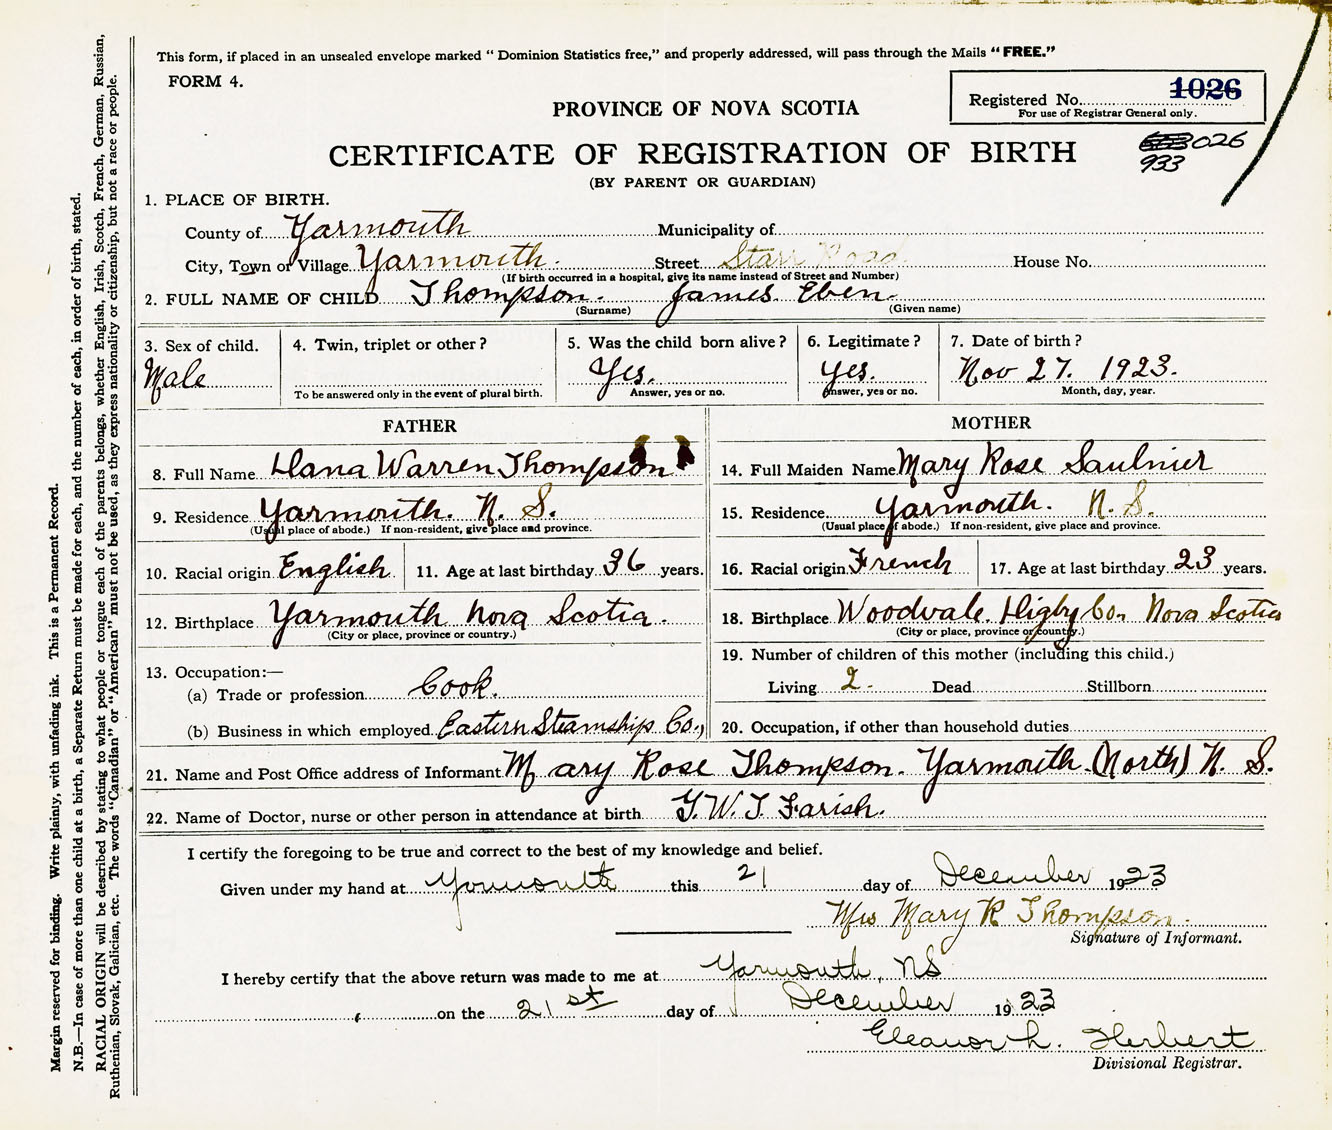 This form, if placed in an unsealed envelope marked "Dominion Statistics free," and properly addressed, will pass through the Mails "FREE."
FORM 4.
Registered No. 1026
For use of Registrar General only.
PROVINCE OF NOVA SCOTIA
026
933
CERTIFICATE OF REGISTRATION OF BIRTH
(BY PARENT OR GUARDIAN)
1. PLACE OF BIRTH.
County of Yarmouth Municipality of
City, Town or Village Yarmouth. Street Starr Road House No.
(If birth occurred in a hospital, give its name instead of Street and Number)
2. FULL NAME OF CHILD Thompson. James Eben.
(Surname) (Given name)
3. Sex of child. 4. Twin, triplet or other? 5. Was the child born alive? 6. Legitimate? 7. Date of birth?
Male Yes. Yes. Nov 27. 1923.
To be answered only in the event of plural birth. Answer, yes or no. Answer, yes or no. Month, day, year.
FATHER MOTHER
8. Full Name Dana Warren Thompson 14. Full Maiden Name Mary Rose Saulnier
9. Residence Yarmouth. N. S. 15. Residence Yarmouth. N. S.
(Usual place of abode.) If non-resident, give place and province. (Usual place of abode.) If non-resident, give place and province.
10. Racial origin English 11. Age at last birthday 36 years. 16. Racial origin French 17. Age at last birthday 23 years.
12. Birthplace Yarmouth Nova Scotia. 18. Birthplace Woodvale. Digby Co. Nova Scotia
(City or place, province or country.) (City or place, province or country.)
13. Occupation:— 19. Number of children of this mother (including this child.)
(a) Trade or profession Cook. Living 2. Dead Stillborn
(b) Business in which employed Eastern Steamship Co., 20. Occupation, if other than household duties
21. Name and Post Office address of Informant Mary Rose Thompson. Yarmouth. (North) N. S.
22. Name of Doctor, nurse or other person in attendance at birth G. W. T. Farish.
I certify the foregoing to be true and correct to the best of my knowledge and belief.
Given under my hand at Yarmouth this 21 day of December 1923
Mrs Mary R Thompson.
Signature of Informant.
I hereby certify that the above return was made to me at Yarmouth, NS
on the 21st day of December 1923
Eleanor L. Herbert
Divisional Registrar.
Margin reserved for binding. Write plainly, with unfading ink. This is a Permanent Record.
N.B.—In case of more than one child at a birth, a Separate Return must be made for each, and the number of each, in order of birth, stated.
RACIAL ORIGIN will be described by stating to what people or tongue each of the parents belongs, whether English, Irish, Scotch, French, German, Russian,
Ruthenian, Slovak, Galician, etc. The words "Canadian" or "American" must not be used, as they express nationality or citizenship, but not a race or people.